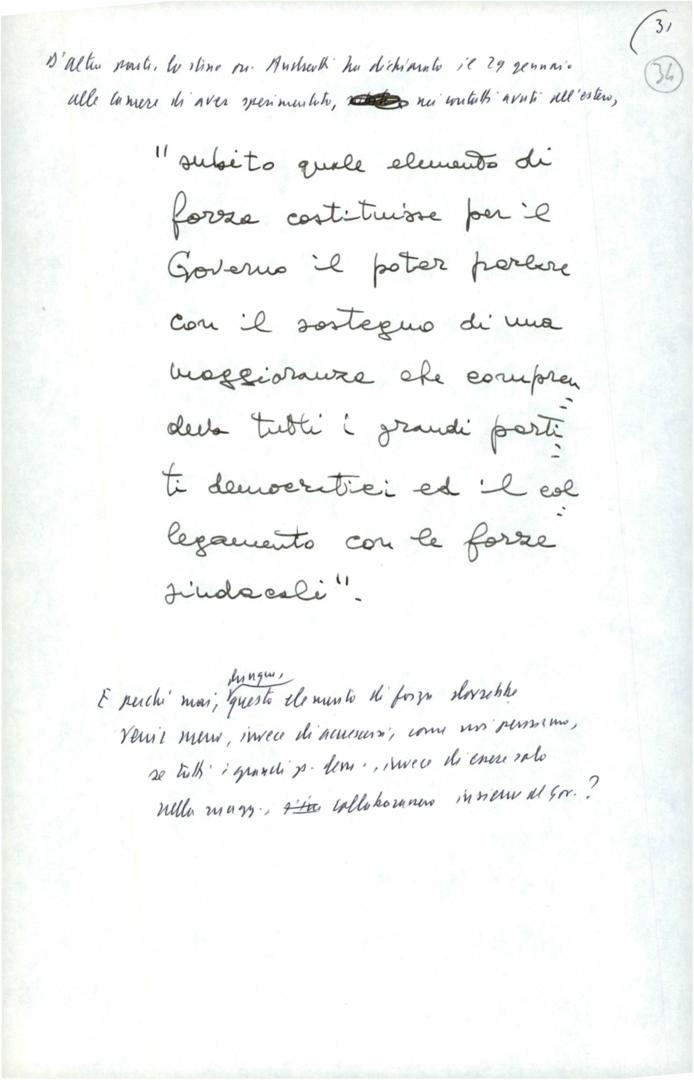 31
34
D'altra parte, lo stesso on. Andreotti ha dichiarato il 29 gennaio
alla Camera di aver sperimentato, nei contatti avuti all'estero,
"subito quale elemento di
forza costituisse per il
Governo il poter parlare
con il sostegno di una
maggioranza che compren
deva tutti i grandi parti
ti democratici ed il col
legamento con le forze
sindacali".
dunque,
E perché mai, questo elemento di forza dovrebbe
venir meno, invece di accrescersi, come noi pensiamo,
se tutti i grandi p. dem., invece di essere solo
nella magg., collaborano insieme al Gov.?